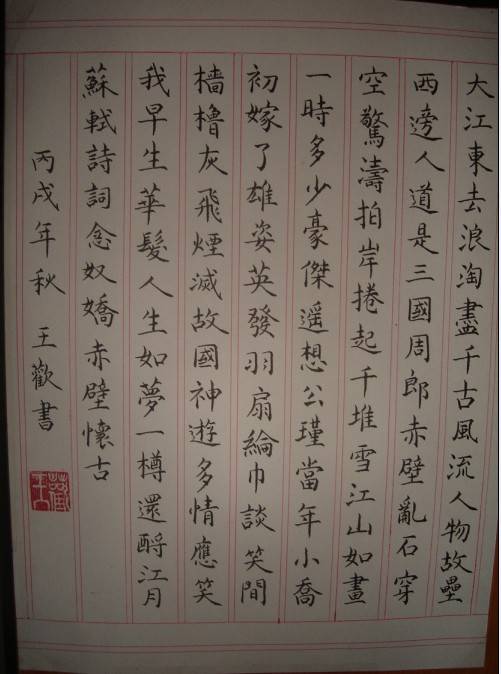 大江東去浪淘盡千古風流人物故壘
西邊人道是三國周郎赤壁亂石穿
空驚濤拍岸捲起千堆雪江山如畫
一時多少豪傑遥想公瑾當年小喬
初嫁了雄姿英發羽扇綸巾談笑間
檣櫓灰飛煙滅故國神遊多情應笑
我早生華髮人生如夢一樽還酹江月
蘇軾詩詞念奴嬌赤壁懷古
丙戌年秋 王歡書